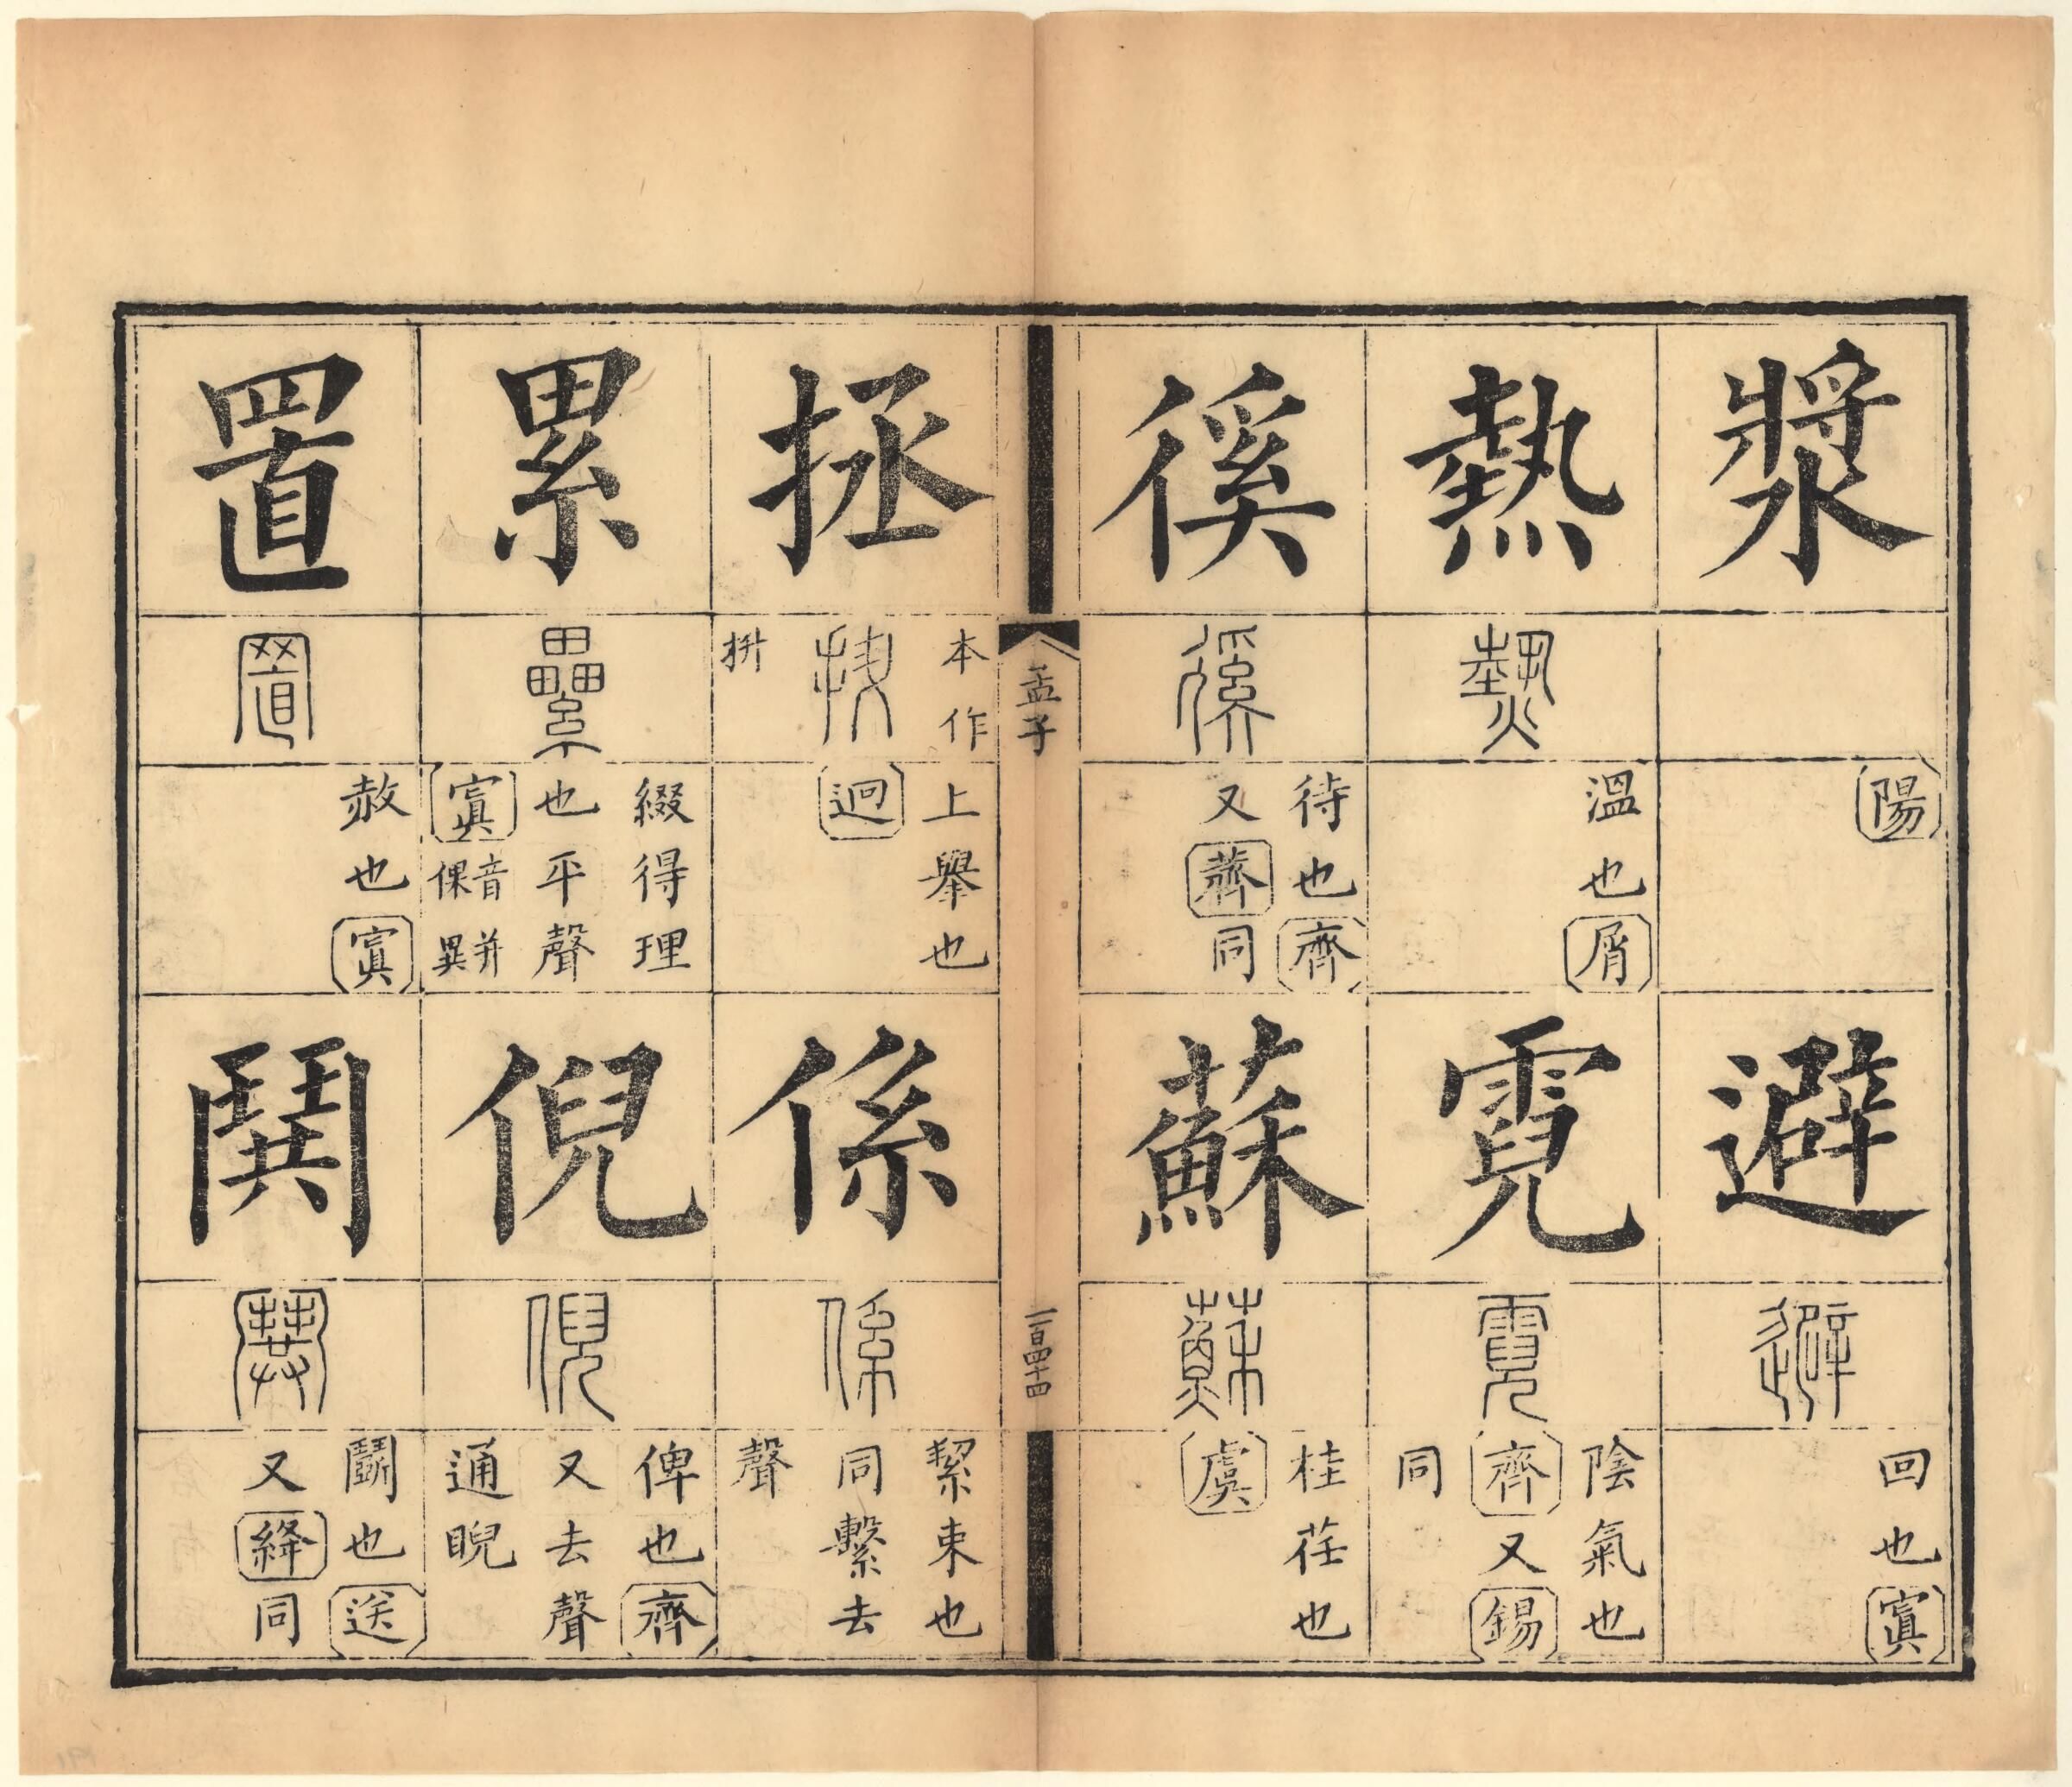 漿
陽
避
避
回也寘
熱
熱
溫也屑
霓
霓
陰氣也
齊又錫
同
徯
徯
待也齊
又薺同
蘇
蘇
桂荏也
虞
孟子
一百四十四
拯
本作
拼
上舉也
迥
係
係
絜束也
同繫去
聲
累
纍
綴得理
也平聲
寘音倮并異
倪
倪
俾也齊
又去聲
通睨
置
置
赦也寘
鬨
鬨
鬭也送
又絳同